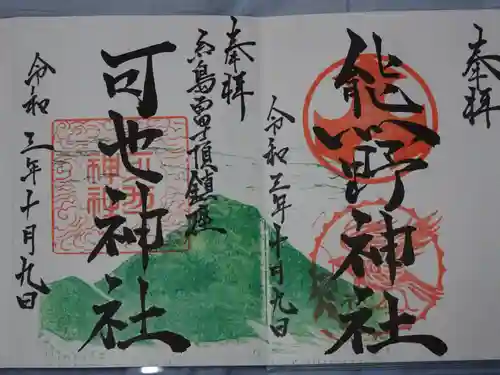 奉拝
熊野神社
令和三年十月九日
奉拝
糸島富士頂鎮座
可也神社
令和三年十月九日
可也
神社